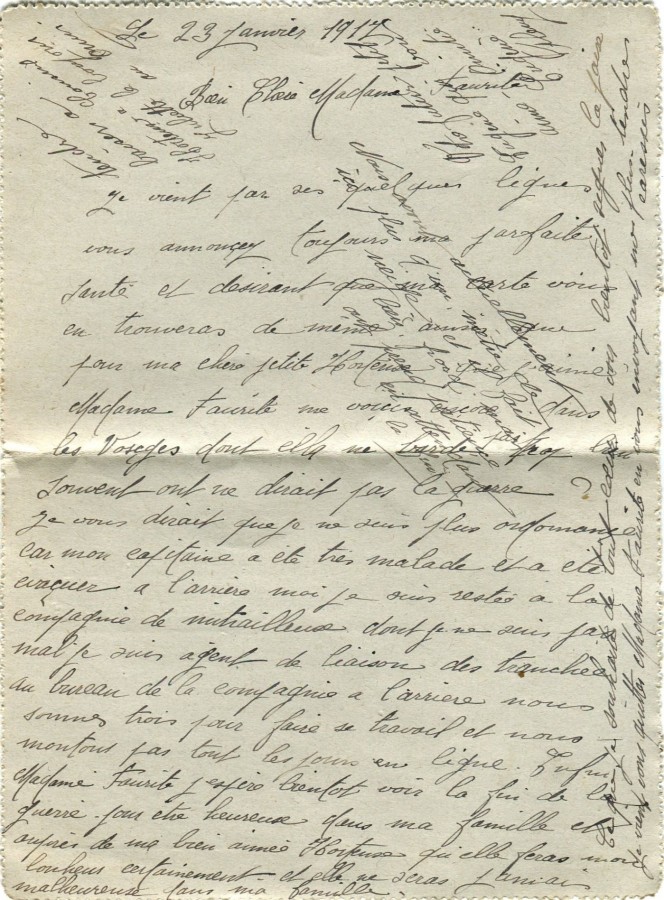 Le 23 janvier 1917
Bien Chère Madame Faurite
Je vient par ses quelques lignes
vous annonçez toujours ma parfaite
santé et desirant que ma carte vous
en trouveras de même ainsi que
pour ma chère petite Hortense
Madame Faurite me voici encore dans
les Vosges dont ella ne barde trop bien
souvent ont ne dirait pas la guerre ?
Je vous dirait que je ne suis plus ordonnance
car mon capitaine a été très malade et a été
evacuer a l'arrière moi je suis restée à la
compagnie de mitrailleuse dont je ne suis pas
mal je suis agent de liaison des tranchées
au bureau de la compagnie a l'arriere nous
sommes trois pour faire se travail et nous
montons pas tout les jours en ligne. Enfin
Madame Faurite j'espère bientot voir la fin de la
guerre pour etre heureuse dans ma famille et
auprès de ma bien aimée Hortense qu'elle feras mon
bonheur certainement et elle ne seras jamais
malheureuse dans ma famille.
je souhaite de tout cœur de vois bientot signer la paix
Je vais vous quitter Madame Faurite en vous envoyant mes plus tendres
caresses
Nous sommes actuellement
plus d'un mètre de